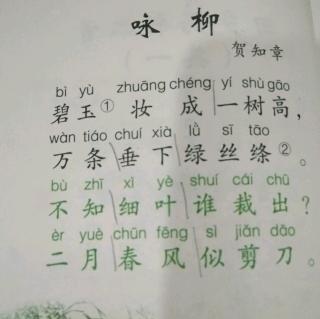 咏柳
贺知章
bì yù zhuāng chéng yí shù gāo
碧玉① 妆成一树高，
wàn tiáo chuí xià lǜ sī tāo
万条垂下绿丝绦②。
bù zhī xì yè shuí cái chū
不知细叶谁裁出？
èr yuè chūn fēng sì jiǎn dāo
二月春风似剪刀。